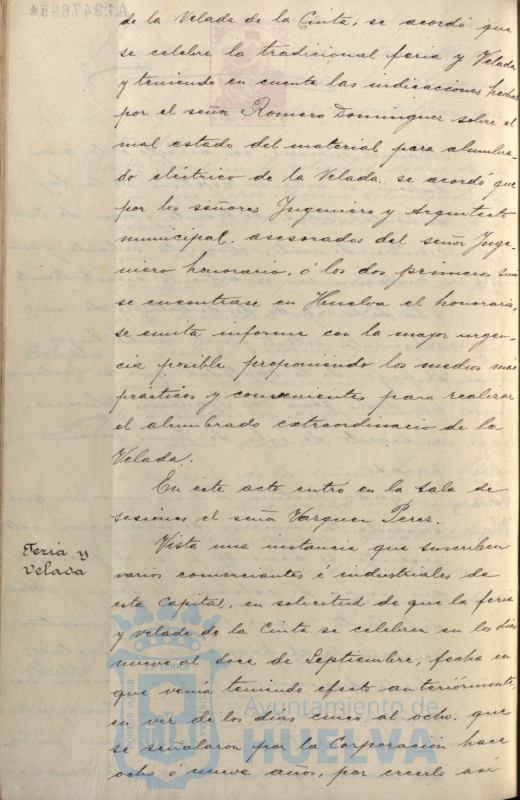 A.1.947.695*
de la Velada de la Cinta, se acordó que
se celebre la tradicional feria y Velada
y teniendo en cuenta las indicaciones hechas
por el señor Romero Dominguez sobre el
mal estado del material para alumbra-
do eléctrico de la Velada. se acordó que
por los señores Ingeniero y Arquitecto
municipal, asesorados del señor Inge-
niero honorario, ó los dos primeros si no
se encontrase en Huelva el honorario,
se emita informe con la mayor urgen-
cia posible proponiendo los medios más
prácticos y convenientes para realizar
el alumbrado extraordinario de la
Velada.
En este acto entró en la sala de
sesiones el señor Vazquez Perez.
Feria y
Velada
Vista una instancia que suscriben
varios comerciantes é industriales de
esta Capital, en solicitud de que la feria
y velada de la Cinta se celebren en los días
nueve al doce de Septiembre, fecha en
que venía teniendo efecto anteriórmente,
en vez de los días cinco al ocho, que
se señalaron por la Corporación hace
ocho ó nueve años, por creerlo así
Ayuntamiento de
HUELVA